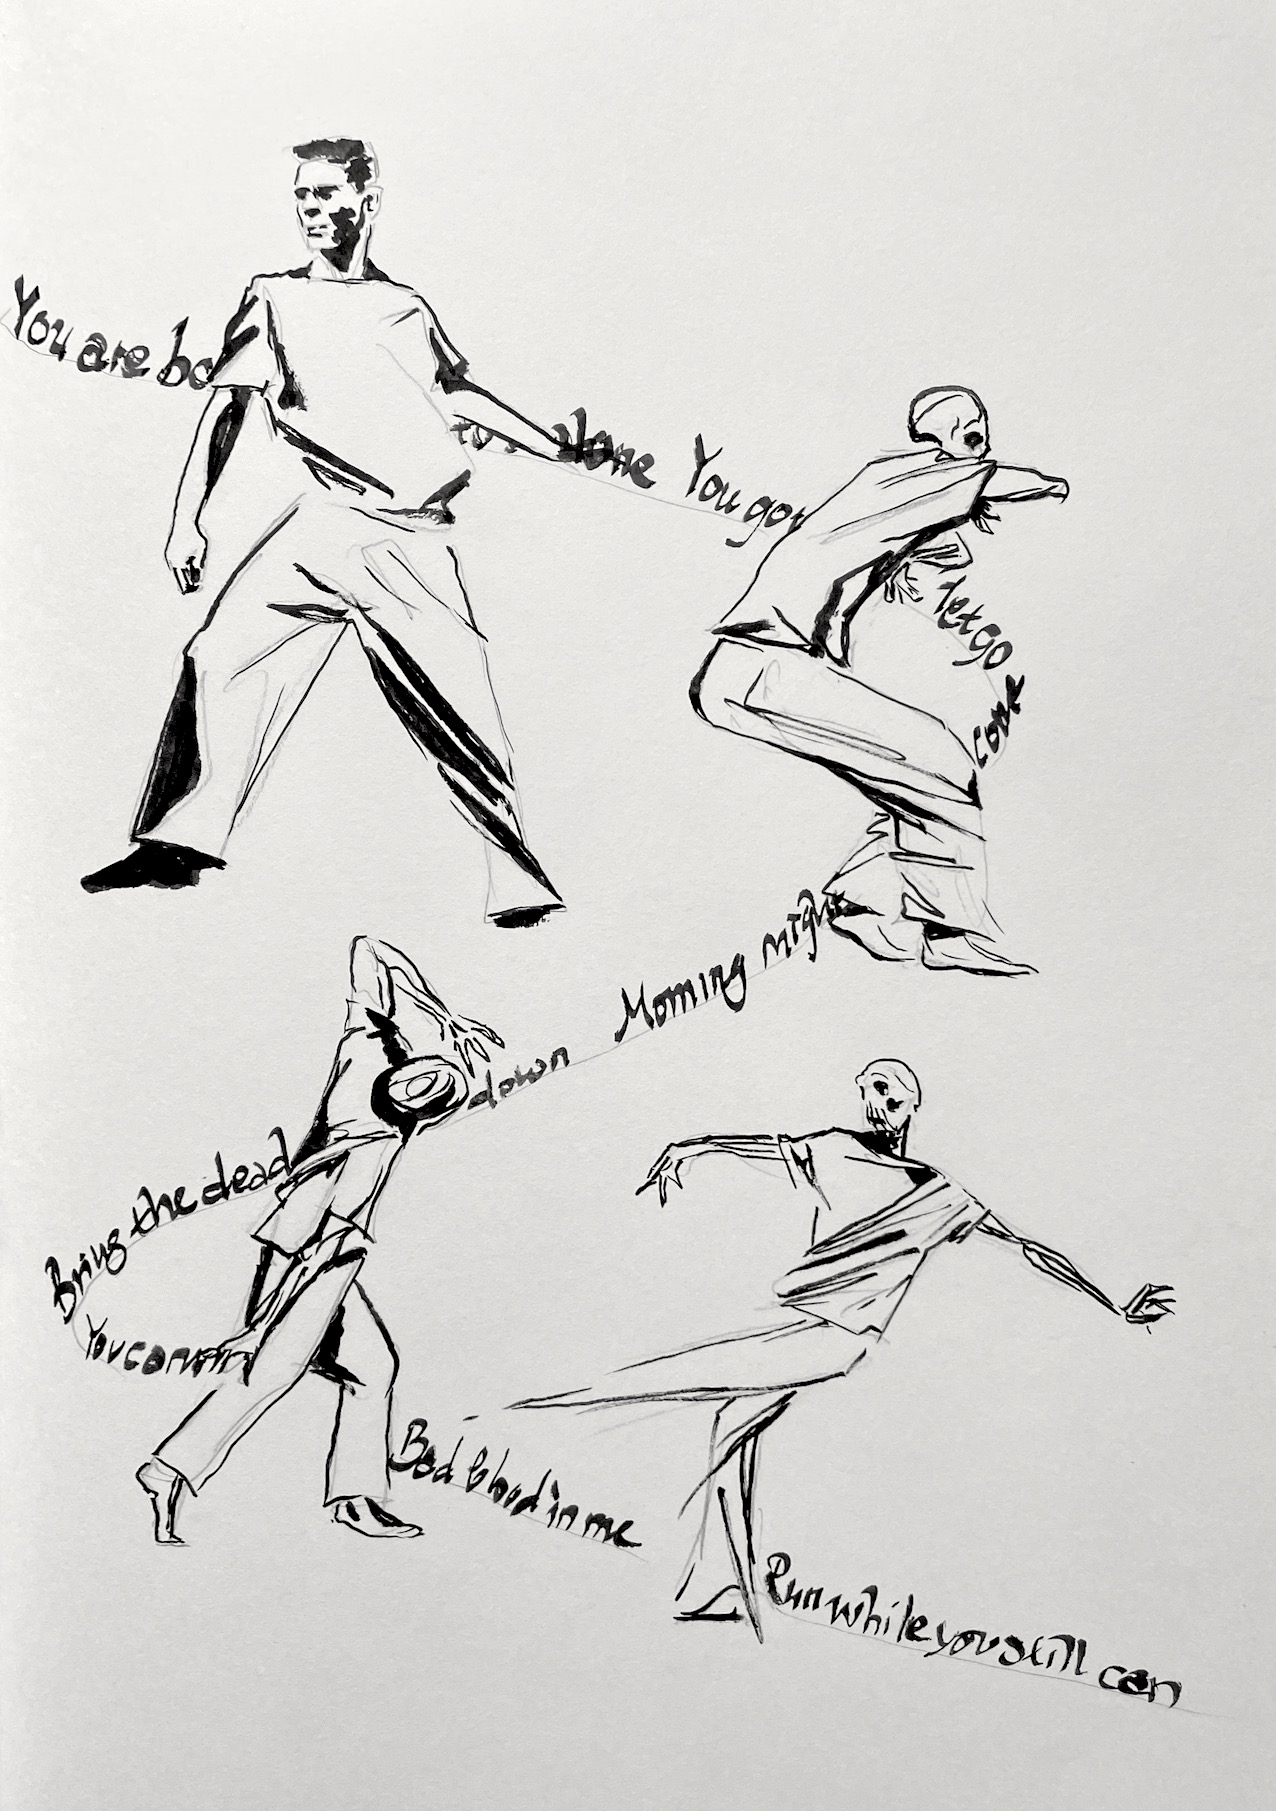 You are bo
alone You got
let go
Morning migh
down
Bring the dead
You can run
Bad blood in me
Run while you still can